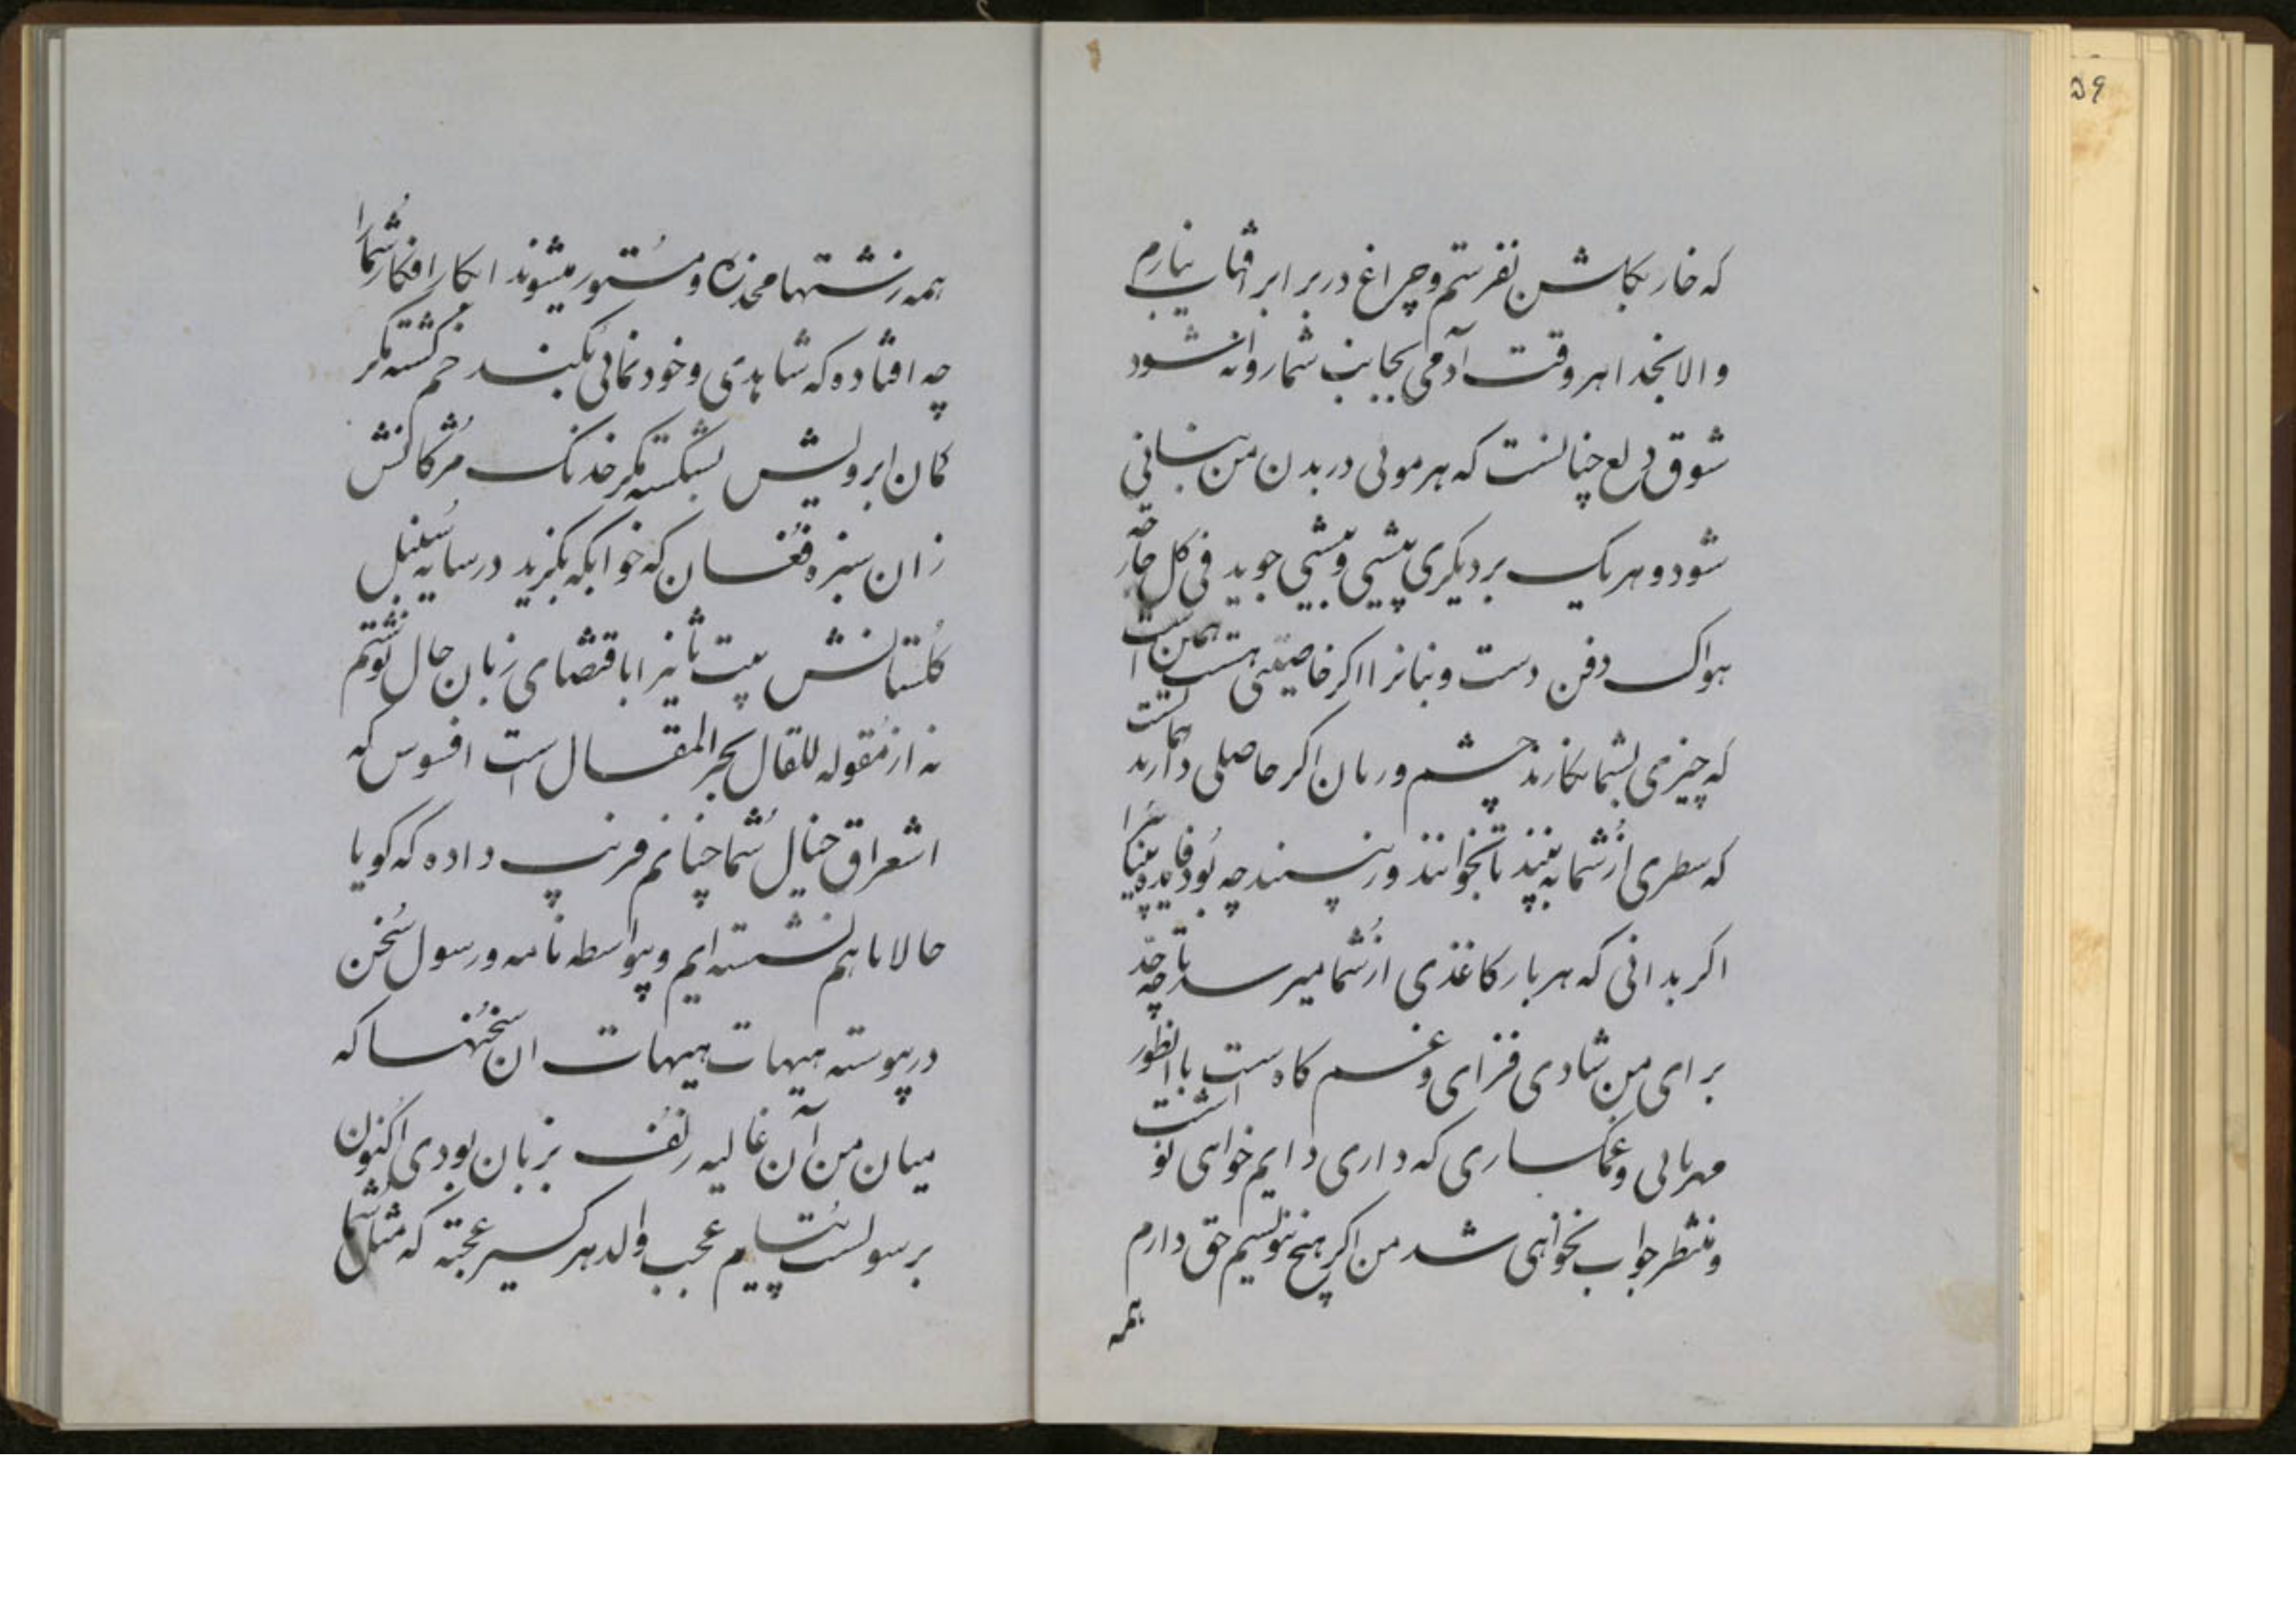 که خار بکلشن نفرستم و چراغ در برابر افتاب نیارم
والا بخدا هر وقت آدمی بجانب شما روانه شود
شوق و لع چنانست که هر موئی در بدن من بنانی
شود و هریک بر دیکری پیشی و بیشی جوید فی کل جارحة
هواک دفن دست و بنانرا اکر خاصیتی هست همین است
که چیزی بشما نکارند چشم و زبان اکر حاصلی دارند همانست
که سطری از شما به بینند تا بخوانند ورنه بینند چه بود فایده بینائی را
اکر بدانی که هر بار کاغذی از شما میرسد تا چه حد
برای من شادی فزای و غم کاه است با انطور
مهربانی و غمکساری که داری دایم خواهی نوشت
و منتظر جواب نخواهی شد من اکر هیچ ننویسم حق دارم
همه
همه زشتها مخدره و مستور میشوند ابکار افکار شما را
چه افتاده که شاهدی و خود نمائی نکنند خم کشته مکر
کمان ابرویش بشکسته مکر خدنک مژکانش
زان سبزه فغان که خوابکه بکزید در سایه سنبل
کلستانش بیت ثانیرا باقتضای زبان حال نوشتم
نه از مقوله للقال بحر المقال است افسوس که
اشعراق خیال شما چنانم فریب داده که کویا
حالا با هم نشسته ایم و بیواسطه نامه و رسول سخن
در پیوسته هیهات هیهات ان سخنها که
میان من آن غالیه زلف بزبان بودی اکنون
برسولست پیام عجب والدهر کسیر عجبته که مثل شما